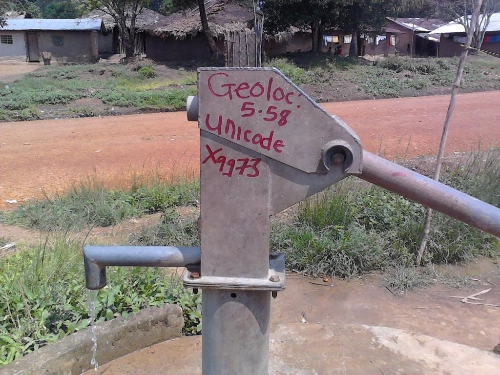 Geoloc:
5.58
Unicode
X9973